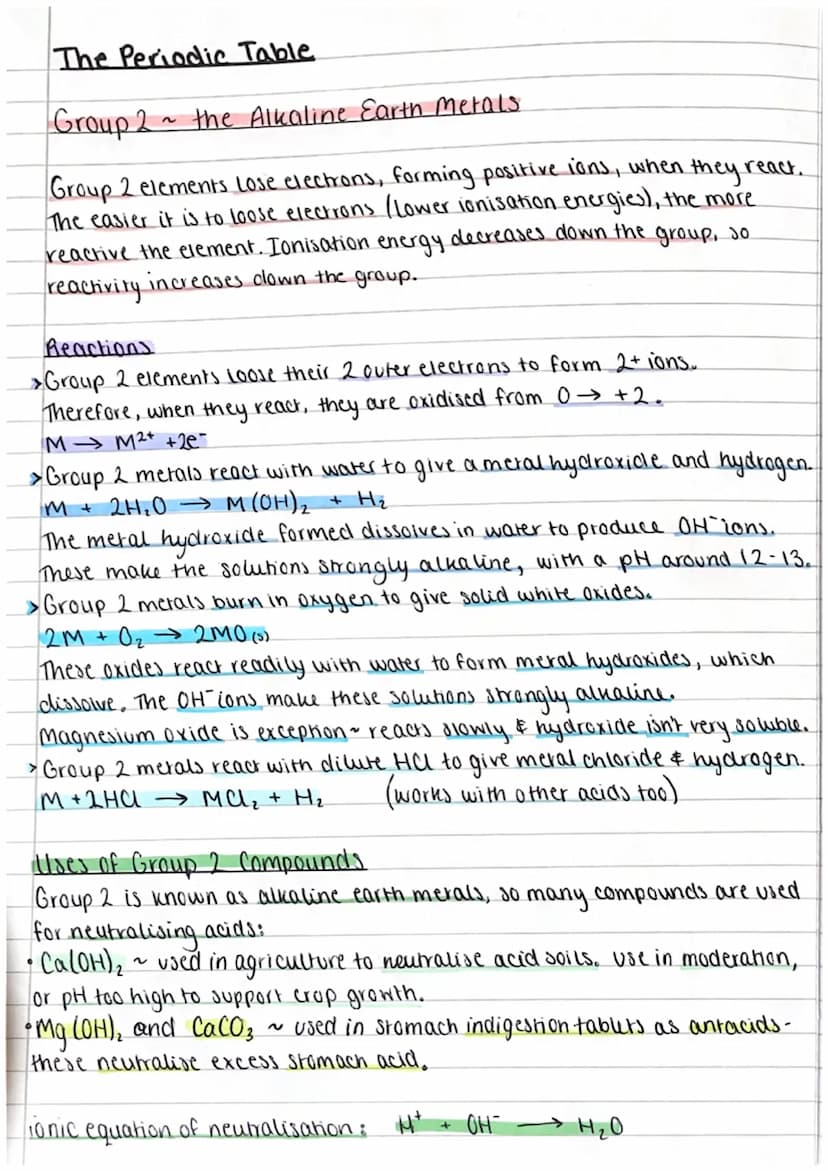 The Periodic Table
Group 2 ~ the Alkaline Earth Metals
Group 2 elements lose electrons, forming positive ions, when they react.
The easier it is to loose electrons (lower ionisation energies), the more
reactive the element. Ionisation energy decreases down the group, so
reactivity increases down the group.
Reactions
> Group 2 elements loose their 2 outer electrons to form 2+ ions.
Therefore, when they react, they are oxidised from 0 → +2.
M → M²⁺ + 2e⁻
> Group 2 metals react with water to give a metal hydroxide and hydrogen.
M + 2H₂O → M(OH)₂ + H₂
The metal hydroxide formed dissolves in water to produce OH⁻ ions.
These make the solutions strongly alkaline, with a pH around 12-13.
> Group 2 metals burn in oxygen to give solid white oxides.
2M + O₂ → 2MO(s)
These oxides react readily with water to form metal hydroxides, which
dissolve. The OH⁻ ions make these solutions strongly alkaline.
Magnesium oxide is exception ~ reacts slowly & hydroxide isn't very soluble.
> Group 2 metals react with dilute HCl to give metal chloride & hydrogen.
M + 2HCl → MCl₂ + H₂ (works with other acids too)
Uses of Group 2 Compounds
Group 2 is known as alkaline earth metals, so many compounds are used
for neutralising acids:
• Ca(OH)₂ ~ used in agriculture to neutralise acid soils. Use in moderation,
or pH too high to support crop growth.
• Mg(OH)₂ and CaCO₃ ~ used in stomach indigestion tablets as antacids -
these neutralise excess stomach acid.
ionic equation of neutralisation: H⁺ + OH⁻ → H₂O